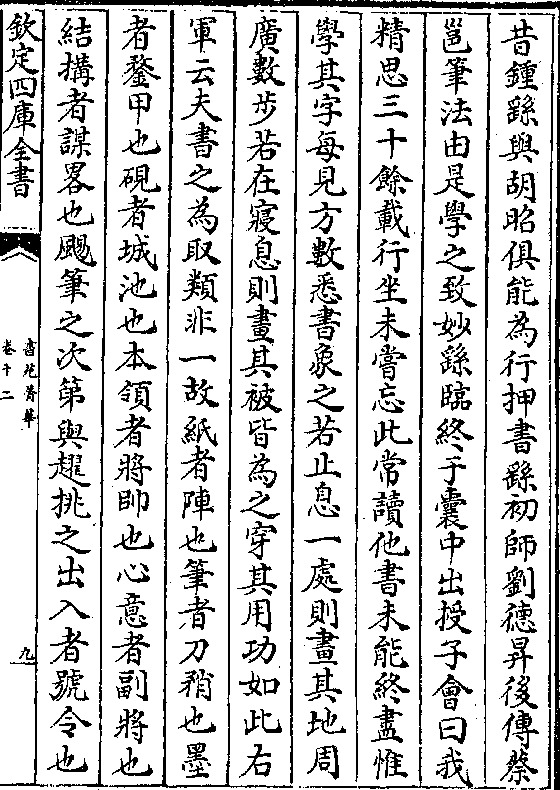 昔鍾繇與胡昭俱能為行押書繇初師劉德昇後傳蔡
邕筆法由是學之致妙繇臨終于囊中出授子會曰我
精思三十餘載行坐未嘗忘此常讀他書未能終盡惟
學其字每見方數悉書象之若止息一處則畫其地周
廣數步若在寢息則畫其被皆為之穿其用功如此右
軍云夫書之為取類非一故紙者陣也筆者刀矟也墨
者鍪甲也硯者城池也本領者將帥也心意者副將也
結搆者謀畧也颺筆之次第與趯挑之出入者號令也
欽定四庫全書
書苑菁華
卷十二
九